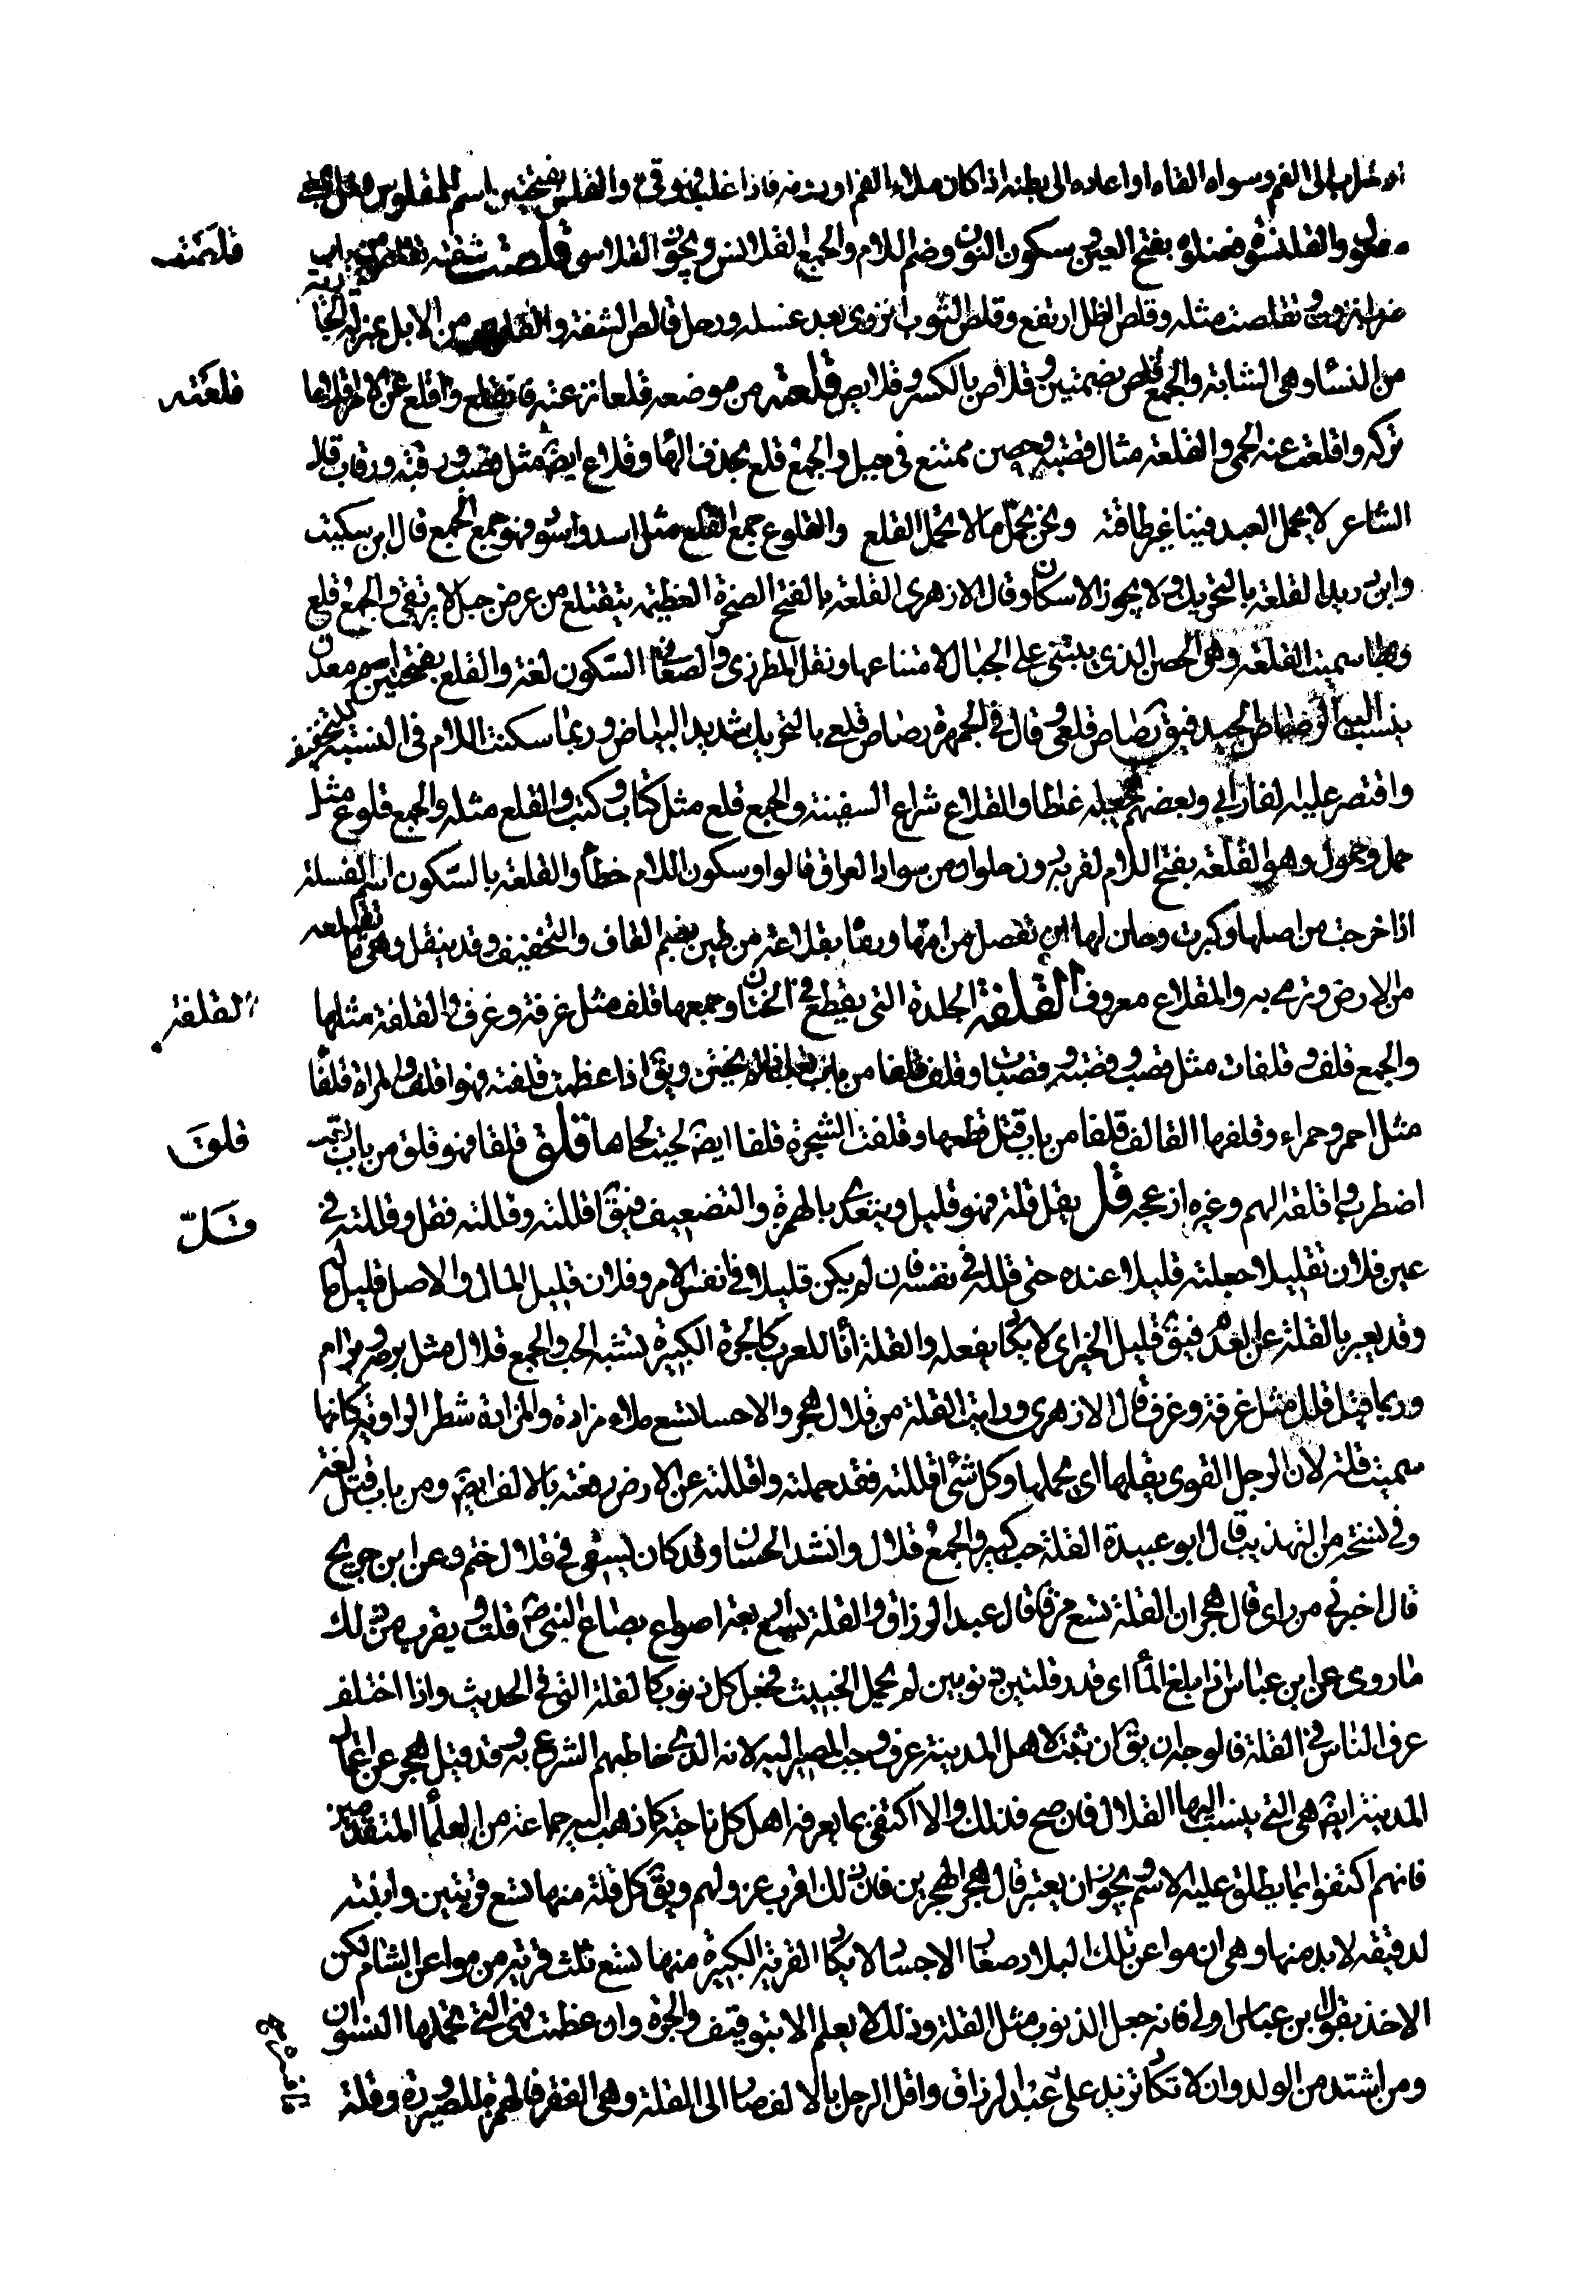 او شراب الى الفم وسواه القاه او اعاده الى بطنه اذا كان ملاء الفم او دونه فاذا غلب فهو قئ والقلس بفتحتين اسم للمقلوس فعل بمعنى
مفعول والقلنسوة فعنلوة بفتح العين وسكون النون وضم اللام والجمع القلانس ويجوز القلاسى قلصت شفته تقلص من باب
قلصت
ضرب انزوت وتقلصت مثله وقلص الظل ارتفع وقلص الثوب انزوى بعد غسله ورجل قالص الشفة والقلوص من الابل بمنزلة الجارية
من النساء وهى الشابة والجمع قلص بضمتين وقلاص بالكسر وقلايص قلعته من موضعه قلعا نزعته فانقلع واقلع عن الامر اقلاعا
قلعته
تركه واقلعت عنه الحمى والقلعة مثال قصبة وحصن ممتنع فى جبل والجمع قلع بحذف الهاء وقلاع ايضا مثل رقبة ورقاب قال
الشاعر لا يحمل العبد فينا غير طاقته ونحن نحمل ما لا تحمل القلع والقلوع جمع القلع مثل اسد واسود فهو جمع الجمع قال ابن سكيت
وابن دريد القلعة بالتحريك ولا يجوز الاسكان وقال الازهرى القلعة بالفتح الصخرة العظيمة يتقلع من عرض جبل لا يرتقى والجمع قلع
وبها سميت القلعة وهى الحصن الذى يبتنى على الجبال لامتناعها ونقل المطرزى والصغانى السكون لغة والقلع بفتحتين اسم معدن
ينسب اليه الرصاص الجيد فيق رصاص قلعى وقال فى الجمهرة رصاص قلعى بالتحريك شديد البياض وربما سكنت اللام فى النسبة للتخفيف
واقتصر عليه الفارابى وبعضهم يجعله غلطا والقلاع شراع السفينة والجمع قلع مثل كتاب وكتب والقلع مثله والجمع قلوع مثل
حمل وحمول وهو القلعة بفتح اللام لقرية دون حلوان من سواد العراق قالوا وسكون اللام خطأ والقلعة بالسكون اسم الفسيلة
اذا خرجت من اصلها وكبرت وحان لها ان تفصل من امها ورماه بقلاعة من طين بضم القاف والتخفيف وقد يثقل وهى ما تقتلعه
من الارض وترمى به والمقلاع معروف القلفة الجلدة التى يقطع فى الختان وجمعها قلف مثل غرفة وغرف والقلفة مثلها
القلفة
والجمع قلف وقلفات مثل قصب وقصبة وقصبات وقلف قلفا من باب تعب اذا لم يختتن ويق اذا عظمت قلفته فهو اقلف والمراة قلفاء
مثل احمر وحمراء وقلفها القالف قلفا من باب قتل قطعها وقلفت الشجرة قلفا ايضا نحيت لحاها قلق قلقا فهو قلق من باب تعب
قلق
اضطرب واقلقه الهم وغيره ازعجه قل يقل قلة فهو قليل ويتعدى بالهمزة والتضعيف فيق اقللته وقللته فقل وقللته فى
قلّ
عين فلان تقليلا جعلته قليلا عنده حتى قلله فى نفسه وان لم يكن قليلا فى نفس الامر وفلان قليل المال والاصل قليل ماله
وقد يعبر بالقلة عن العدم فيق قليل الخير اى لا يكاد يفعله والقلة اناء للعرب كالجرة الكبيرة تشبه الحب والجمع قلال مثل برمة وبرام
وربما قيل قلل مثل غرفة وغرف قال الازهرى ورايت القلة من قلال هجر والاحساء تسع ملاء مزادة والمزادة شطر الراوية كانها
سميت قلة لان الرجل القوى يقلها اى يحملها وكل شئ اقللته فقد حملته واقللته عن الارض رفعته بالالف ايضا ومن باب قتل لغة
وفى نسخة من التهذيب قال ابو عبيدة القلة حب كبير والجمع قلال وانشد لحسان وقد كان يسقى فى قلال حنتم وعن ابن جريج
قال اخبرنى من راى قلال هجر ان القلة تسع فرقا قال عبد الرزاق والفرق يسع اربعة اصواع بصاع النبى ص قلت ويقرب من ذلك
ما روى عن ابن عباس اذا بلغ الماء اى قدر قلتين ذنوبين لم يحمل الخبيث فجعل كل ذنوب كالقلة التى فى الحديث واذا اختلف
عرف الناس فى القلة فالوجه ان يق ان ثبت لاهل المدينة عرف وجب المصير اليه لانه الذى خاطبهم الشرع به وقد قيل هجر من اعمال
المدينة ايضا هى التى ينسب اليها القلال فان صح فذلك والا اكتفى بما يعرفه اهل كل ناحية كما ذهب اليه جماعة من العلماء المتقدمين
فانهم اكتفوا بما يطلق عليه الاسم ويجوز ان يعتبر قلال هجر البحرين فان ذلك اقرب عرف لهم ويق كل قلة منها تسع قربتين واثبته
لدقيقة لا بد منها وهى ان مواعين تلك البلاد صغار الاجسام لا يكاد القربة الكبيرة منها تسع ثلث قربة من مواعين الشام لكن
الاخذ بقول ابن عباس اولى فانه جعل الذنوب مثل القلة وذلك لا يعلم الا بتوقيف والجرة وان عظمت فهى التى تحملها النسوان
ومن اشتد من الولدان لا تكاد تزيد على عبد الرزاق واقل الرجل بالالف صار الى القلة وهى الفقر فالهمزة للصيرورة وقلة